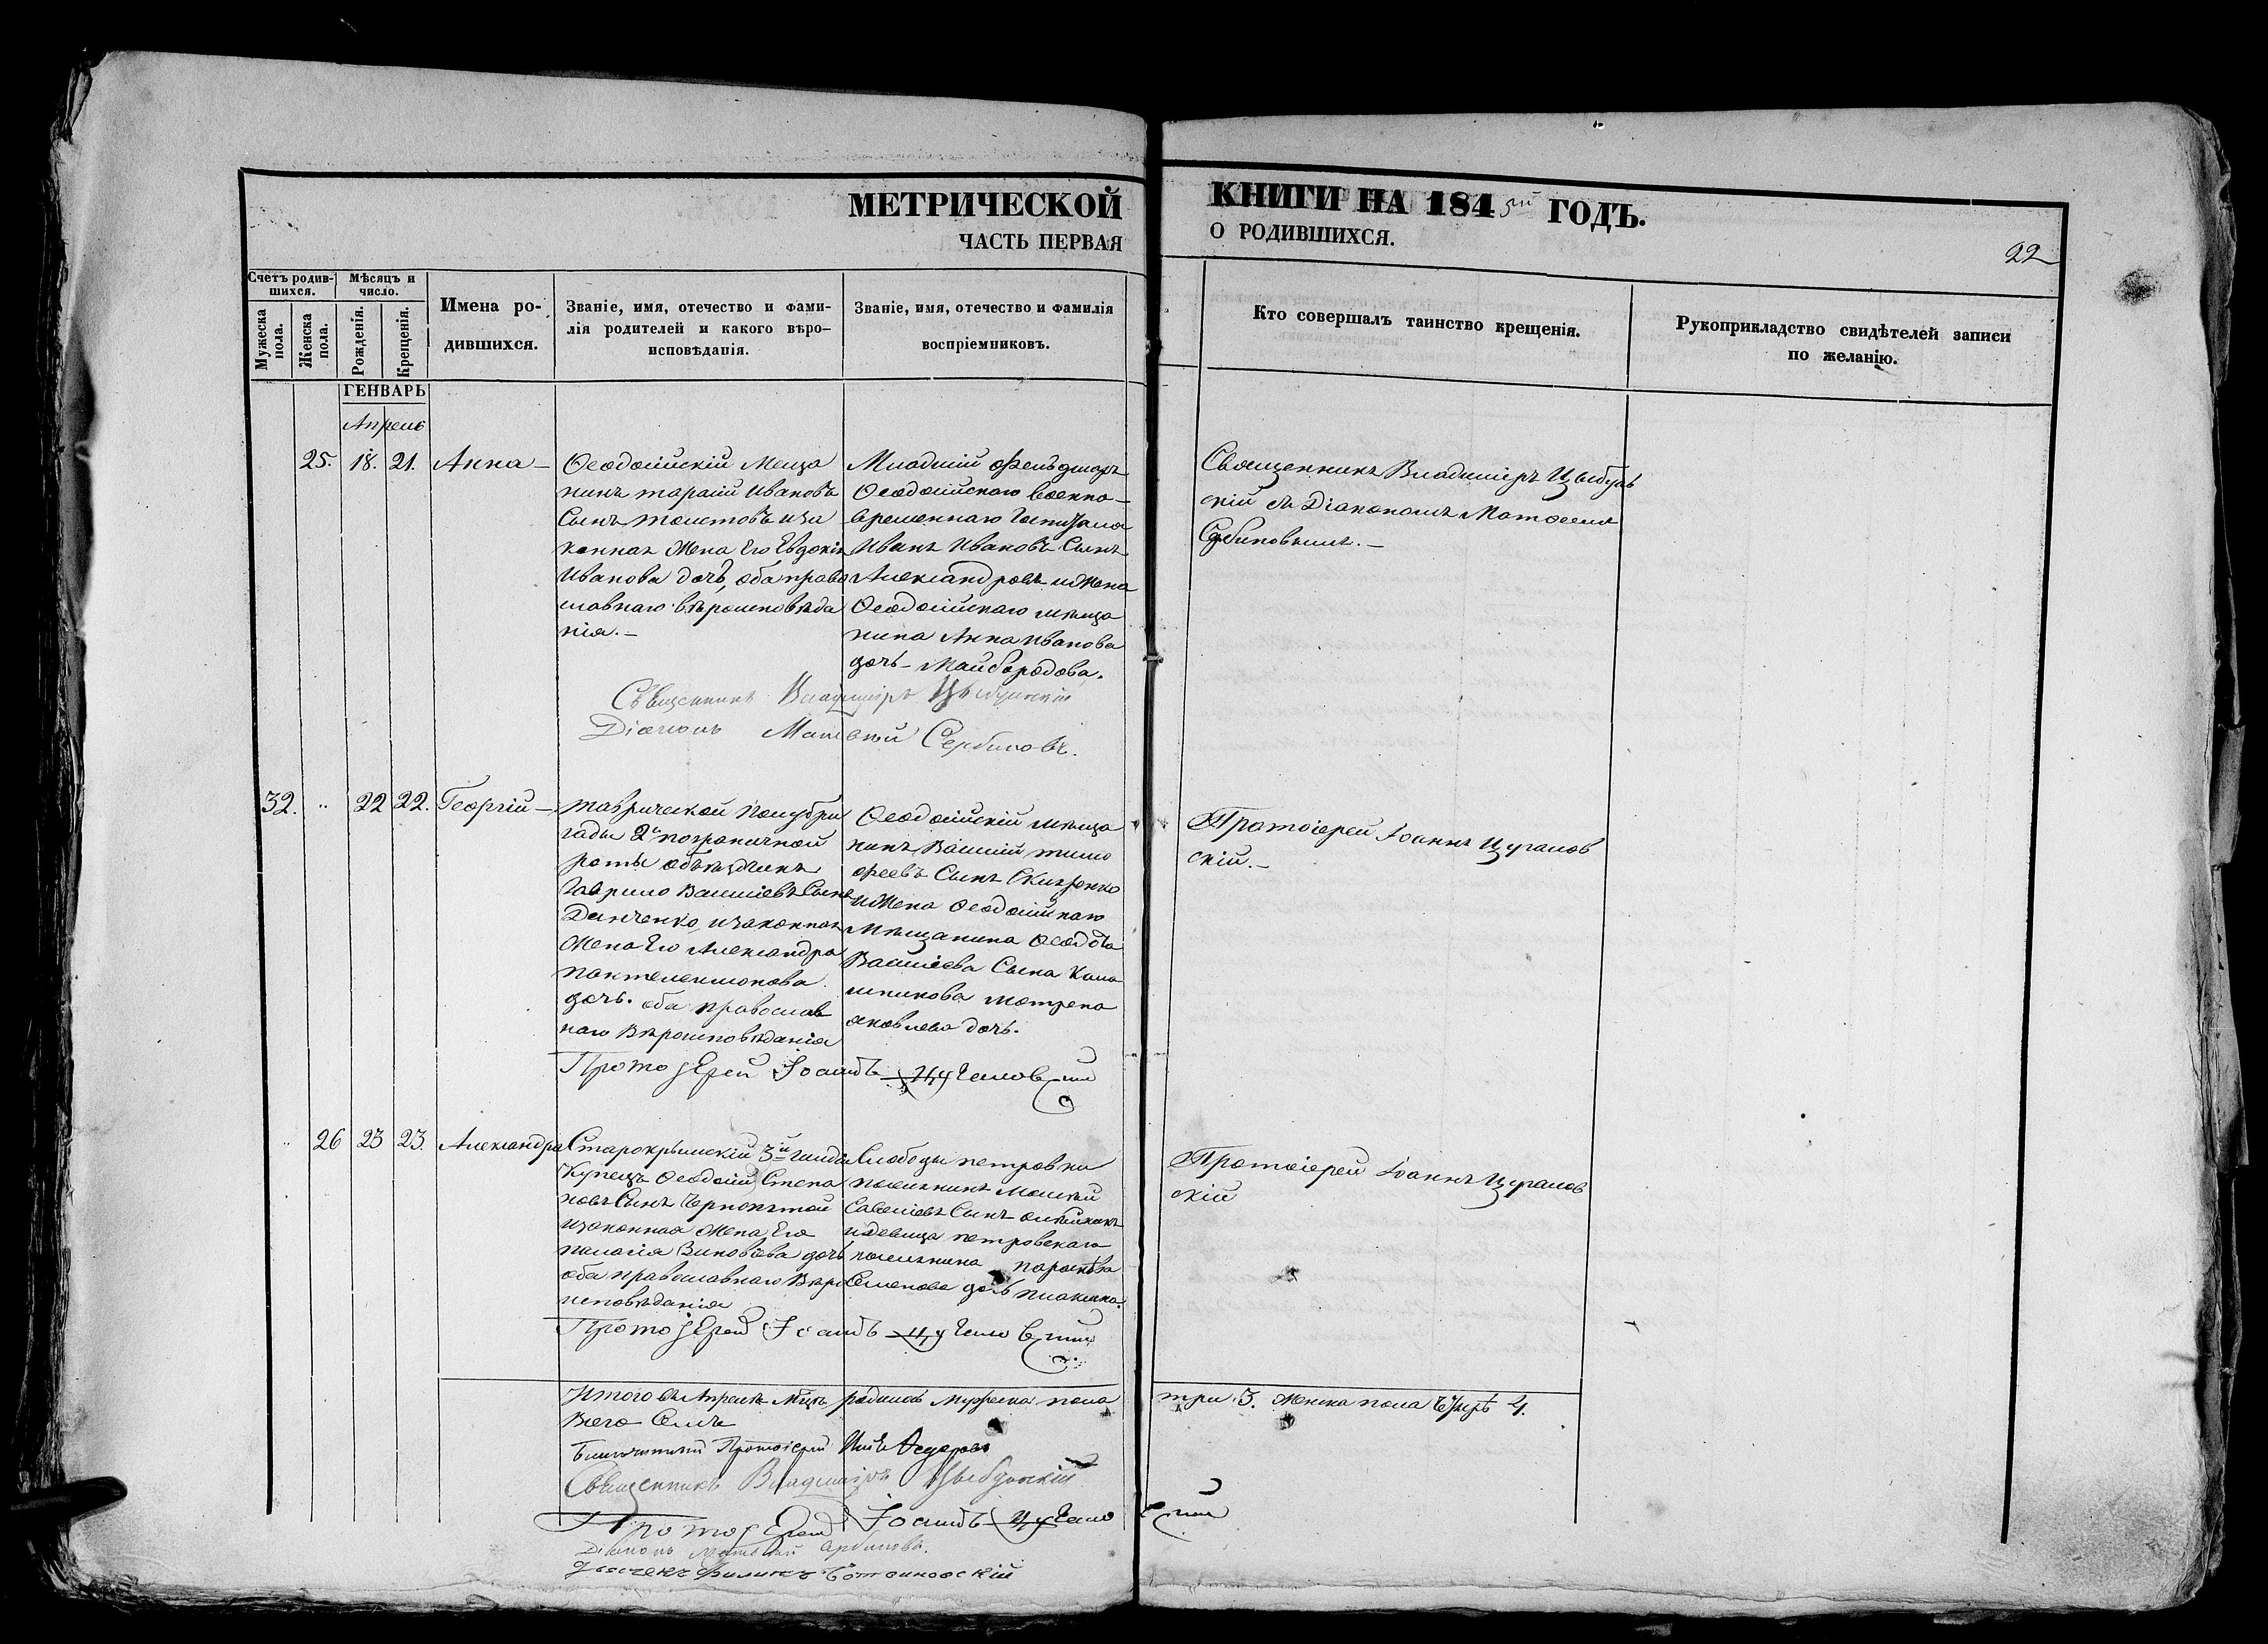 МЕТРИЧЕСКОЙ
ЧАСТЬ ПЕРВАЯ
КНИГИ НА 1845й ГОДЪ.
О РОДИВШИХСЯ.
22
Счетъ родив-
шихся.
Мѣсяцъ и
число.
Мужеска
пола.
Женска
пола.
Рожденія.
Крещенія.
Имена ро-
дившихся.
Званіе, имя, отечество и фами-
лія родителей и какого вѣро-
исповѣданія.
Званіе, имя, отечество и фамилія
воспріемниковъ.
Кто совершалъ таинство крещенія.
Рукоприкладство свидѣтелей записи
по желанію.
ГЕНВАРЬ
Апрель
25. 18. 21. Анна –
Ѳеодосійскій меща
нинъ Тарасій Ивановъ
Сынъ Толстовъ иза
конная Жена Его Евдокія
Иванова дочь, оба право
славнаго вѣроисповѣда
нія. –
Младшій фельдшеръ
Ѳеодосійскаго военно-
временнаго Гошпиталя
Иванъ Ивановъ Сынъ
Александровъ и Жена
Ѳеодосійскаго мѣща
нина Анна Иванова
дочь – Майбородова.
Священникъ Владиміръ Цыбуль
скій съ Діакономъ Матѳеемъ
Сербиновымъ. –
Священникъ Владиміръ Цыбульскій
Діаконъ Матвей Сербиновъ.
32. 22 22. Георгій –
Таврической Полубри
гады 2й пограничной
роты объѣздчикъ
Гаврило Васильевъ Сынъ
Данченко, изаконная
Жена Его Александра
Пантелеимонова
дочь. оба православ
наго Вѣроисповѣданія
Ѳеодосійскій мѣща
нинъ Василій Тимо
феевъ Сынъ
и Жена Ѳеодосійскаго
Мѣщанина
Васильева Сына Кала
шникова Мотрена
Яковлева дочь.
Протоіерей Іоаннъ Цугалов
скій. –
Протоіерей Іоаннъ Цугаловскій
26 23 23. Александра
Старокрымскій 3й гильдіи
Купецъ Ѳеодосій Степа
новъ Сынъ
изаконная Жена Его
Пелагія Зиновіева дочь
оба православнаго Вѣро
исповѣданія
Слободы Петровки
поселянинъ Моисей
Савельевъ Сынъ
и девица Петровскаго
поселянина Параскева
Семенова дочь
Протоіерей Іоаннъ Цугалов
скій
Протоіерей Іоаннъ Цугаловскій
Итого въ Апрелѣ Мцѣ родилось мужеска пола три 3. Женска пола Четыре 4.
Всего Семь
Благочинный Протоіерей
Священникъ Владиміръ Цыбульскій
Протоіерей Іоаннъ Цугаловскій
Діаконъ Матвей Сербиновъ.
Дьячекъ Филипъ